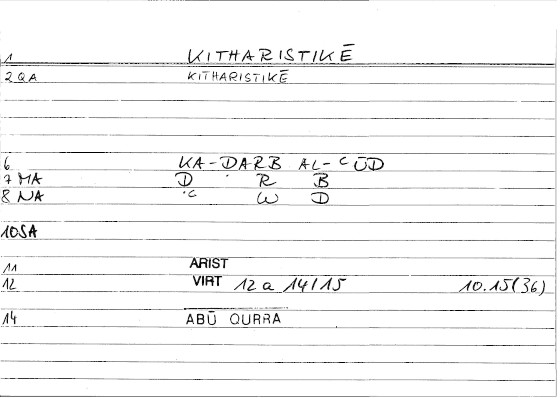 1 KITHARISTIKĒ
2 QA KITHARISTIKĒ
6 KA-ḌARB AL-ʿŪD
7 MA Ḍ R B
8 NA ʿ W D
10SA
11 ARIST
12 VIRT 12 a 14/15 10.15(36)
14 ABŪ QURRA